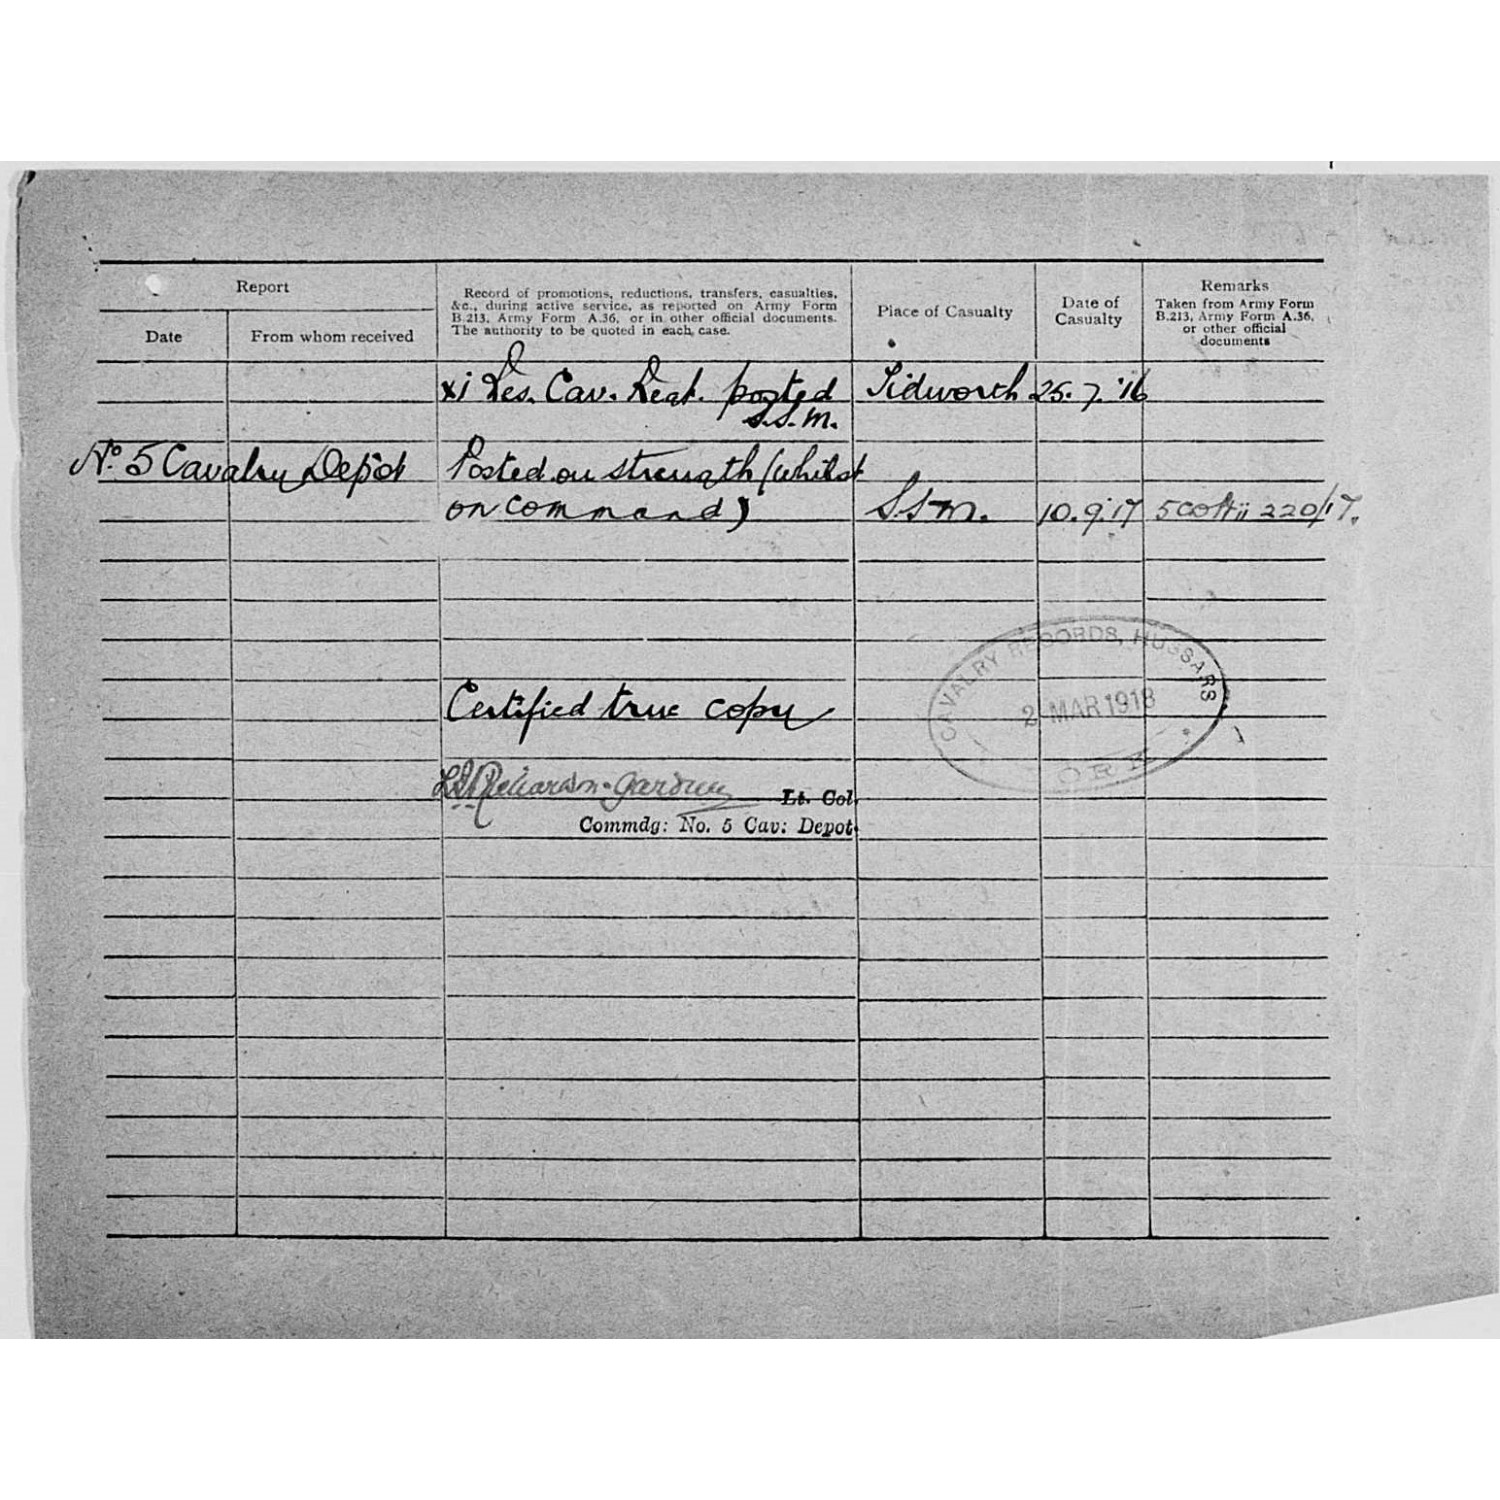 Report
Date
From whom received
Record of promotions, reductions, transfers, casualties,
&c., during active service, as reported on Army Form
B.213, Army Form A.36, or in other official documents.
The authority to be quoted in each case.
Place of Casualty
Date of
Casualty
Remarks
Taken from Army Form
B.213, Army Form A.36,
or other official
documents
xi Res. Cav. Regt. posted Tidworth 25.7.'16
S.S.M.
No. 5 Cavalry Depot Posted on strength (whilst
on command) S.S.M. 10.9.'17 220/17.
CAVALRY RECORDS, HUSSARS
2 MAR 1918
YORK
Certified true copy
Richardson-Gardner Lt. Col.
Commdg: No. 5 Cav: Depot.